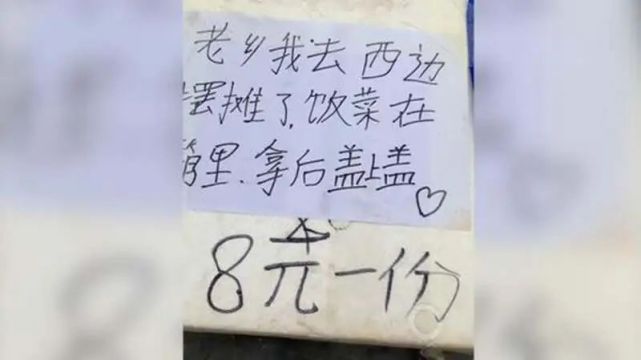 老乡我去西边
摆摊了,饭菜在
箱里.拿后盖上盖♡
8元一份